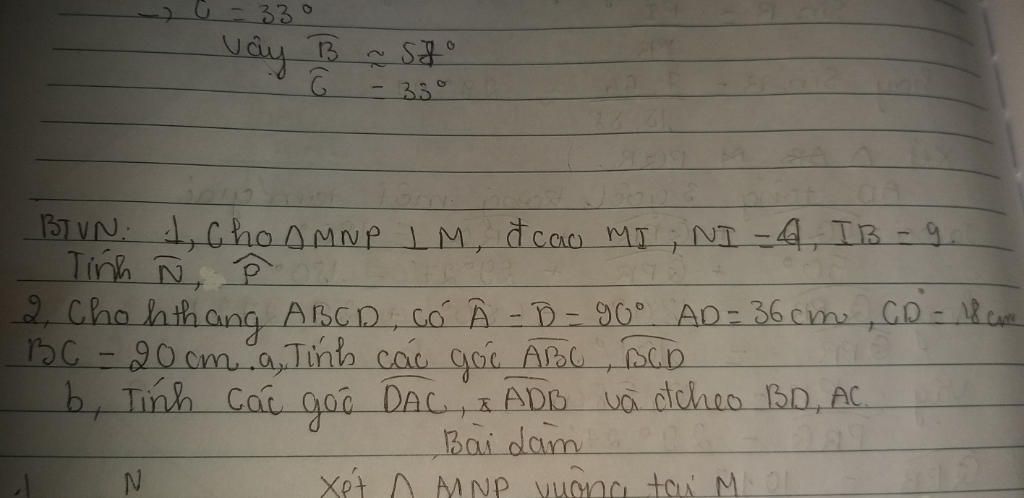 → C = 33°
Vậy B̂ ≈ 57°
Ĉ = 33°
BTVN: 1, Cho ΔMNP ⊥ M, đcao MI, NI = 4, IB = 9.
Tính N̂, P̂
2, Cho hthang ABCD, có Â = D̂ = 90° AD = 36cm, CD = 18cm
BC = 20cm. a, Tính các góc ABC, BCD
b, Tính các góc DAC, ADB và đcheo BD, AC
Bài dàm
1 N Xét Δ MNP vuông tại M